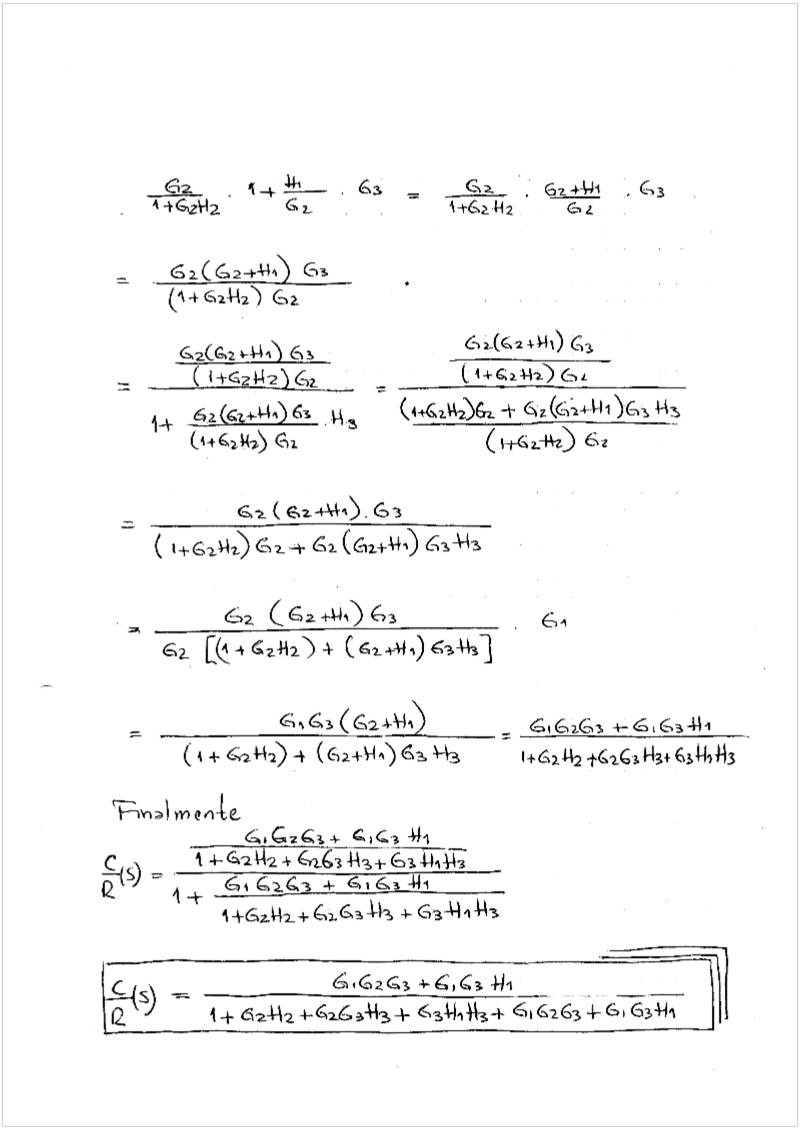 G2/(1+G2H2) . 1 + H1/G2 . G3 = G2/(1+G2H2) . (G2+H1)/G2 . G3
= G2(G2+H1) G3 / (1+G2H2) G2
= [G2(G2+H1) G3 / (1+G2H2) G2] / [1 + G2(G2+H1) G3 / (1+G2H2) G2 . H3] = [G2(G2+H1) G3 / (1+G2H2) G2] / [((1+G2H2)G2 + G2(G2+H1)G3 H3) / (1+G2H2) G2]
= G2(G2+H1).G3 / ((1+G2H2)G2 + G2(G2+H1) G3H3)
= G2 (G2+H1) G3 / G2 [(1+G2H2) + (G2+H1) G3H3] . G1
= G1G3(G2+H1) / ((1+G2H2) + (G2+H1)G3H3) = (G1G2G3 + G1G3H1) / (1+G2H2+G2G3H3+G3H1H3)
Finalmente
C/R(s) = [(G1G2G3 + G1G3H1) / (1+G2H2+G2G3H3+G3H1H3)] / [1 + (G1G2G3 + G1G3H1) / (1+G2H2+G2G3H3+G3H1H3)]
C/R(s) = (G1G2G3 + G1G3H1) / (1+G2H2+G2G3H3+G3H1H3+G1G2G3+G1G3H1)